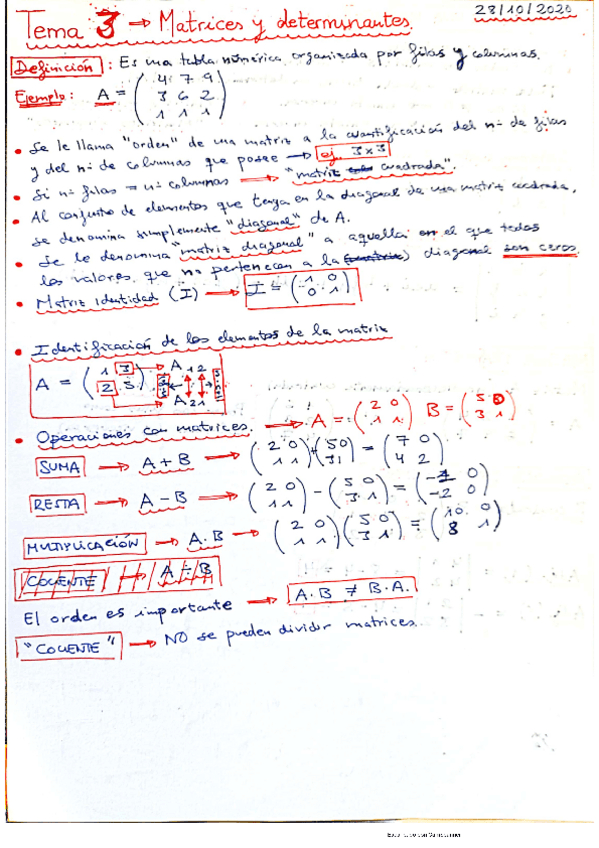 28/10/2020
Tema 3 → Matrices y determinantes.
Definición : Es una tabla númerica organizada por filas y columnas.
Ejemplo: A = ( 4 7 9
3 6 2
1 1 1 )
• Se le llama "orden" de una matriz a la cuantificación del nº de filas
y del nº de columnas que posee → ej. 3x3
• Si nº filas = nº columnas → "matriz cuadrada".
• Al conjunto de elementos que tenga en la diagonal de una matriz cuadrada,
se denomina simplemente "diagonal" de A.
• Se le denomina "matriz diagonal" a aquella en el que todos
los valores que no pertenecen a la (matriz) diagonal son ceros.
• Matriz identidad (I) → I = ( 1 0
0 1 )
• Identificación de los elementos de la matriz
A = ( 1 3 → A12
2 5 ) → A21
• Operaciones con matrices. → A = ( 2 0 B = ( 5 0
1 1 ) 3 1 )
SUMA → A + B → ( 2 0 + ( 5 0 = ( 7 0
1 1 ) 3 1 ) 4 2 )
RESTA → A - B → ( 2 0 - ( 5 0 = ( 0
1 1 ) 3 1 ) -2 0 )
MULTIPLICACIÓN → A · B → ( 2 0 ( 5 0 = ( 10 0
1 1 ) 3 1 ) 8 1 )
COCIENTE → A ÷ B
El orden es importante → A · B ≠ B · A.
"COCIENTE" → NO se pueden dividir matrices.